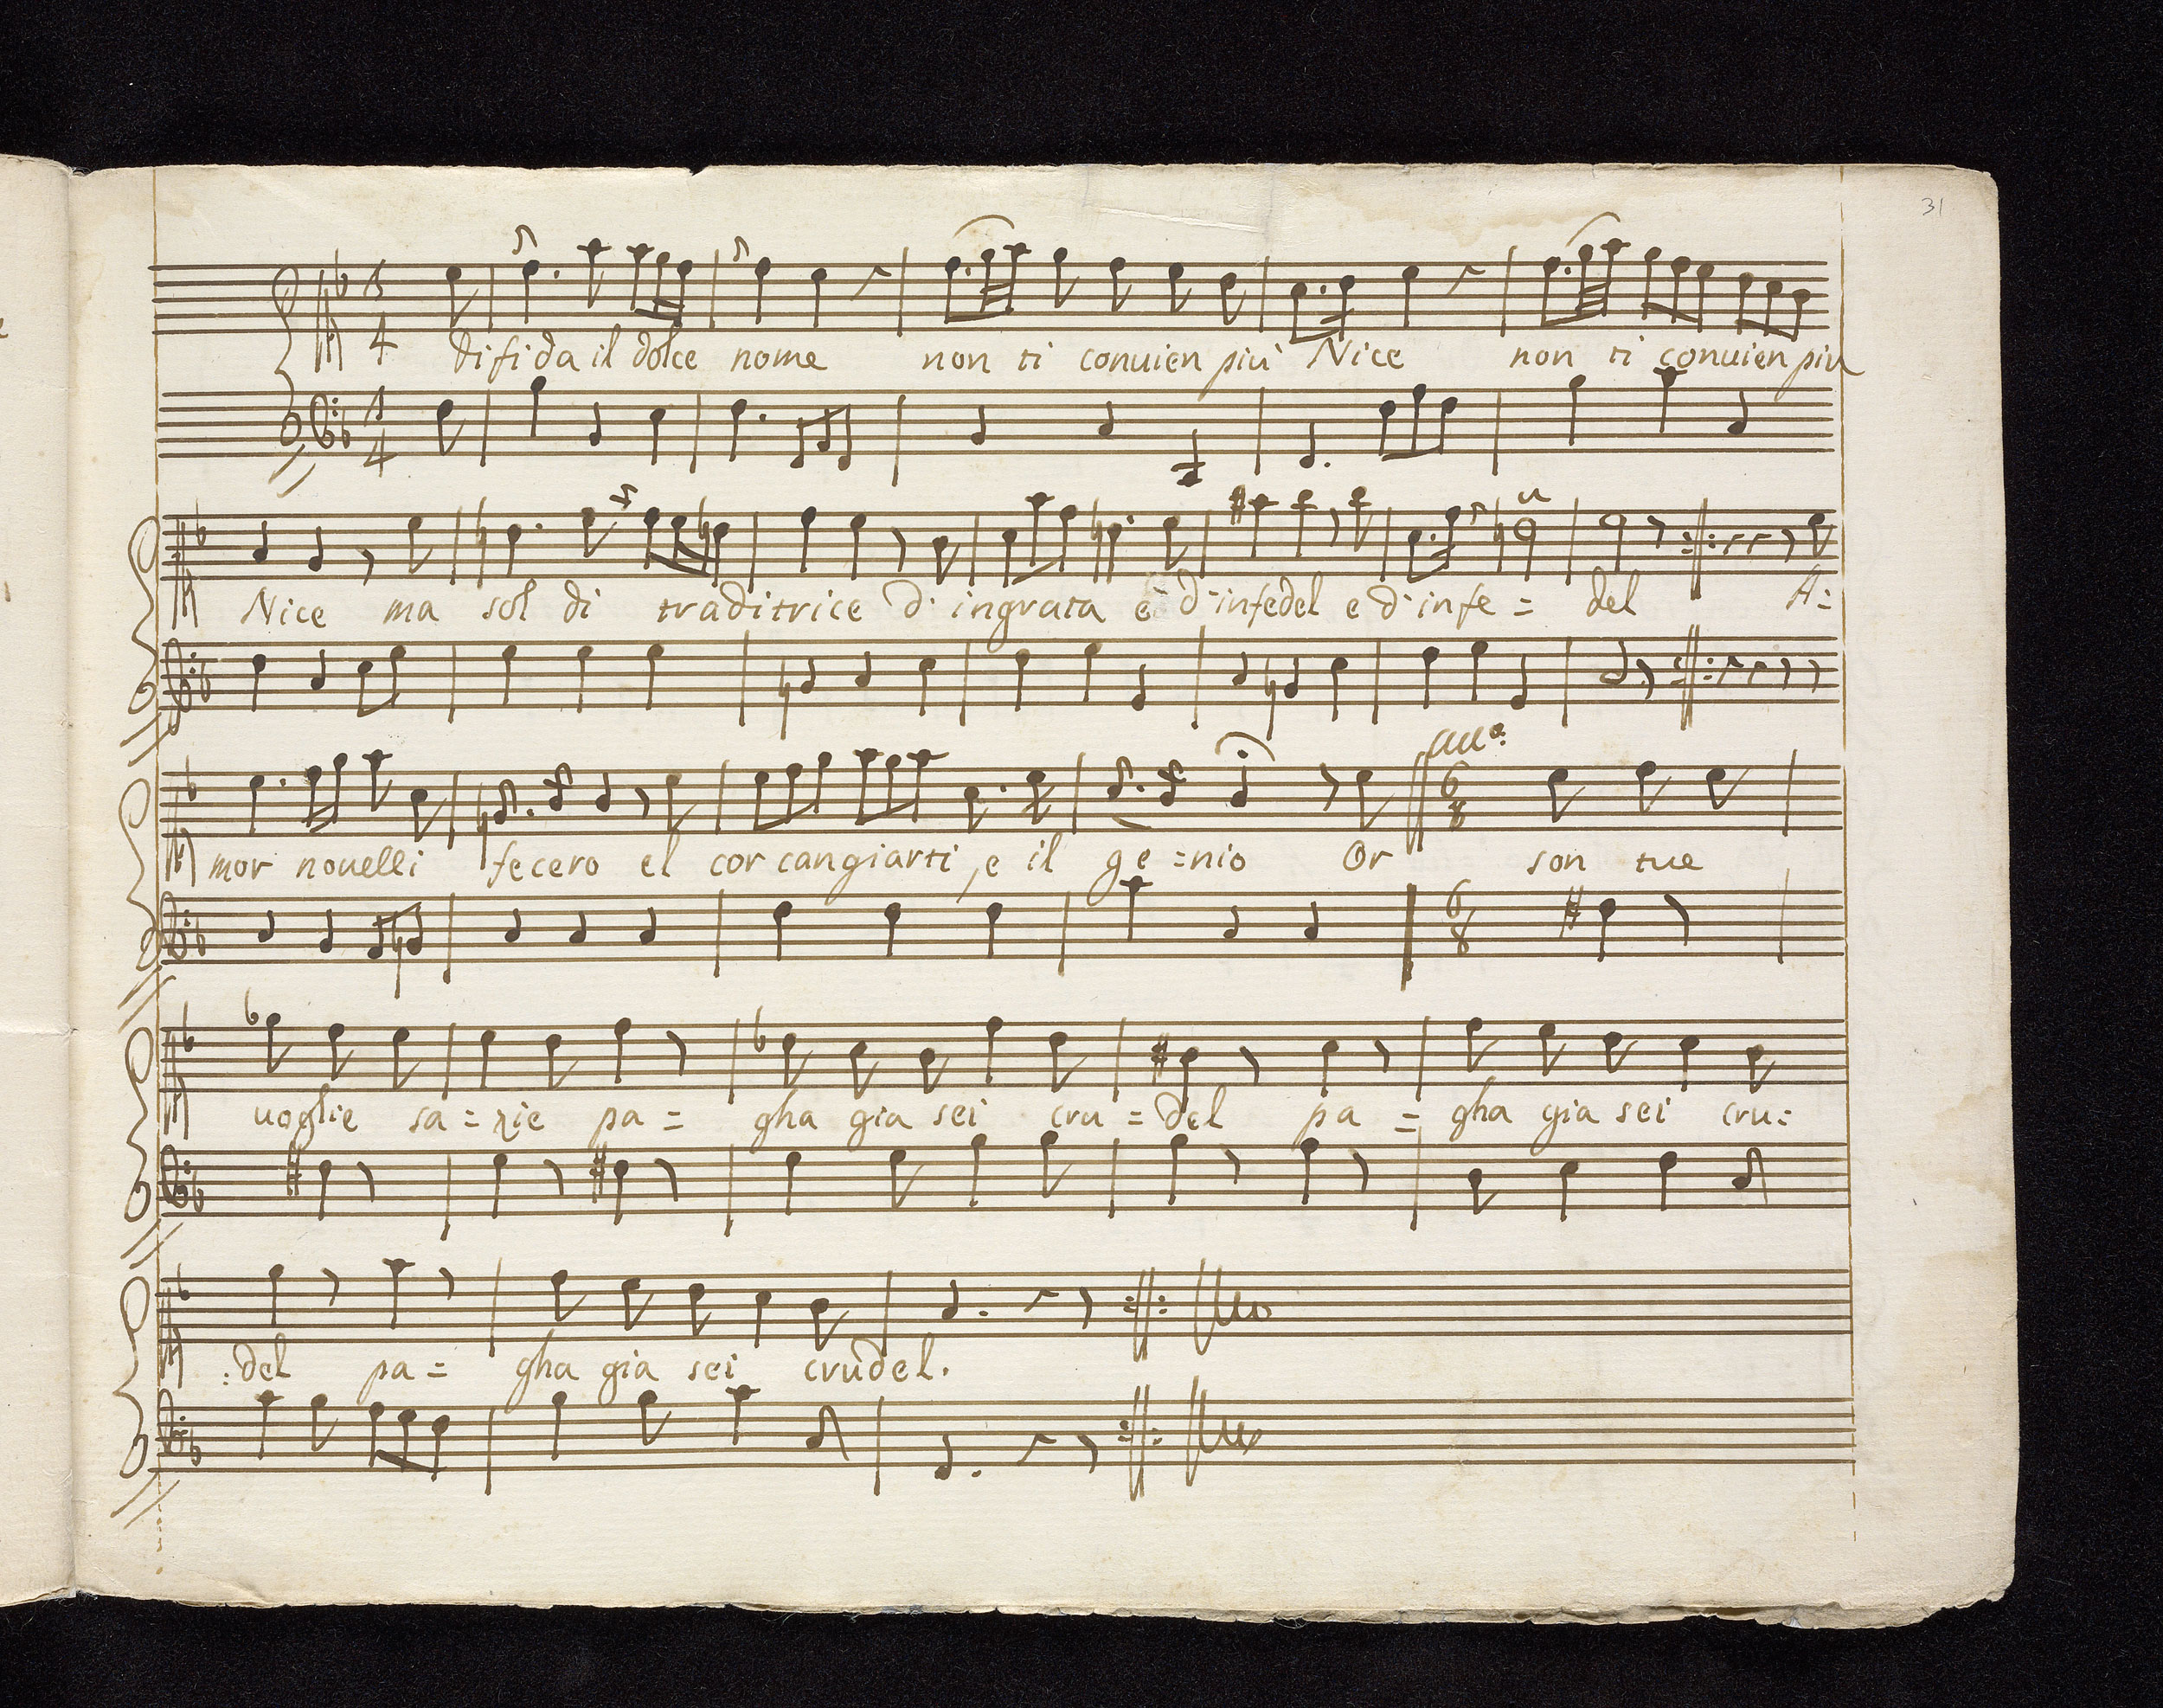 31
3
4
di fida il dolce nome non ti conuien più Nice non ti conuien più
3
4
Nice ma sol di traditrice d'ingrata e d'infedel e d'infe = del A=
All.º
6
8
mor nouelli fecero el cor cangiarti, e il ge =nio Or son tue
6
8
uoglie sa = zie pa = gha gia sei cru = del pa = gha gia sei cru=
:del pa = gha gia sei crudel.